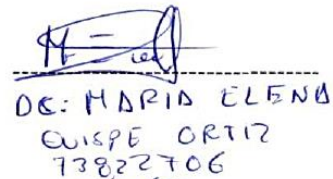 DE: MARIA ELENA
QUISPE ORTIZ
73822706